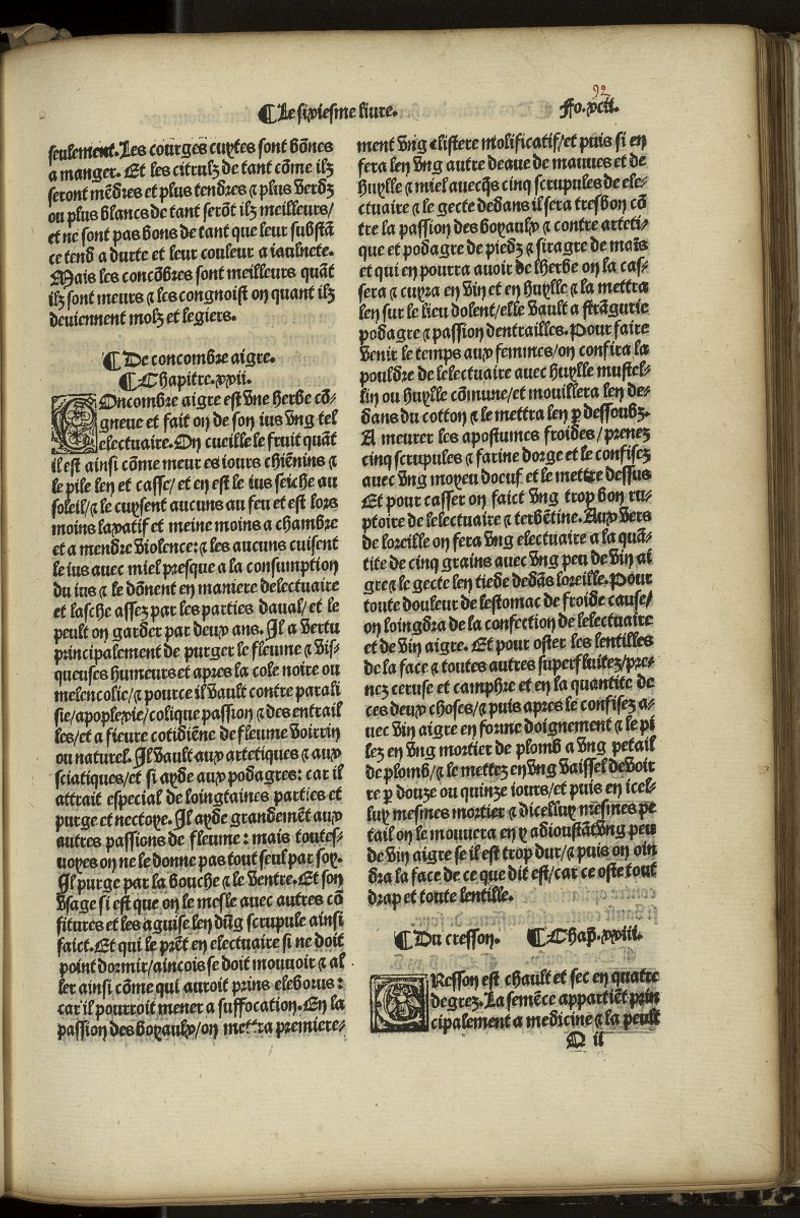 92
¶Le sixiesme liure. fo.xcii.
seulement.Les courges cuytes sont bõnes
a manger. Et les citrulz de tant cõme ilz
seront mẽdres et plus tendres ⁊ plus verdz
ou plus blances de tant serõt ilz meilleurs/
et ne sont pas bons de tant que leur substã
ce tend a durte et leur couleur a iaulnete.
Mais les concõbres sont meilleurs quãt
ilz sont meurs ⁊ les congnoist on quant ilz
deuiennent molz et legiers.
¶De concombre aigre.
¶Chapitre.xxii.
COncombre aigre est vne herbe cõ-
gneue et fait on de son ius vng tel
electuaire.On cueille le fruit quãt
il est ainsi cõme meur es iours chiẽnins ⁊
le pile len et casse/et en est le ius seiche au
soleil/⁊ le cuysent aucuns au feu et est lors
moins laxatif et meine moins a chambre
et a mendre violence:⁊ les aucuns cuisent
le ius auec miel presque a la consumption
du ius ⁊ le dõnent en maniere delectuaire
et lasche assez par les parties daual/et le
peult on garder par deux ans. Il a vertu
principalement de purger le fleume ⁊ vis-
queuses humeurs et apres la cole noire ou
melencolie/⁊ pource il vault contre parali
sie/apoplexie/colique passion ⁊ des entrail
les/et a fieure cotidiẽne de fleume voirrin
ou naturel. Il vault aux artetiques ⁊ aux
sciatiques/et si ayde aux podagres: car il
attrait especial de loingtaines parties et
purge et nectoye. Il ayde grandemẽt aux
autres passions de fleume : mais toutes-
uoyes on ne le donne pas tout seul par soy.
Il purge par la bouche ⁊ le ventre.Et son
vsage si est que on le mesle auec autres cõ
fitures et les aguise len dũg scrupule ainsi
faict.Et qui le prẽt en electuaire si ne doit
point dormir/aincois se doit mouuoir ⁊ al
ler ainsi cõme qui auroit prins eleborus:
car il pourroit mener a suffocation.En la
passion des boyaulx/on mettra premiere-
ment vng clistere molificatif/et puis si en
fera len vng autre deaue de mauues et de
huylle ⁊ miel auecq̃s cinq scrupules de ele-
ctuaire ⁊ le gecte dedans il sera tresbon cõ
tre la passion des boyaulx ⁊ contre arteti-
que et podagre de piedz ⁊ siragre de mais
et qui en pourra auoir de lherbe on la cas-
sera ⁊ cuyra en vin et en huylle ⁊ la mettra
len sur le lieu dolent/elle vault a strãgurie
podagre ⁊ passion dentrailles.Pour faire
venir le temps aux femmes/on confira la
pouldre de lelectuaire auec huylle mustel-
lin ou huylle cõmune/et mouillera len de-
dans du cotton ⁊ le mettra len p̱ dessoubz.
A meurer les apostumes froides/prenez
cinq scrupules ⁊ farine dorge et le confisez
auec vng moyeu doeuf et le mettre dessus
Et pour casser on faict vng trop bon ru-
ptoire de lelectuaire ⁊ terbẽtine.Aux vers
de loreille on fera vng electuaire a la quã-
tite de cinq grains auec vng peu de vin ai
gre ⁊ le gecte len tiede dedãs loreille.Pour
toute douleur de lestomac de froide cause/
on loingdra de la confection de lelectuaire
et de vin aigre. Et pour oster les lentilles
de la face ⁊ toutes autres superfluitez/pre-
nez ceruse et camphre et en la quantite de
ces deux choses/⁊ puis apres le confisez a-
uec vin aigre en forme doignement ⁊ le pi
lez en vng mortier de plomb a vng petail
de plomb/⁊ le mettez en vng vaissel de voir
re p̱ douze ou quinze iours/et puis en icel-
luy mesmes mortier ⁊ dicelluy mesmes pe
tail on le mouuera en y adioustãt vng peu
de vin aigre se il est trop dur/⁊ puis on oin
dra la face de ce que dit est/car ce oste tout
drap et toute lentille.
¶Du cresson. ¶Chap̃.xxiii.
CResson est chault et sec en quatre
degrez.La semẽce appartiẽt prin
cipalement a medicine ⁊ la peult
Q ii